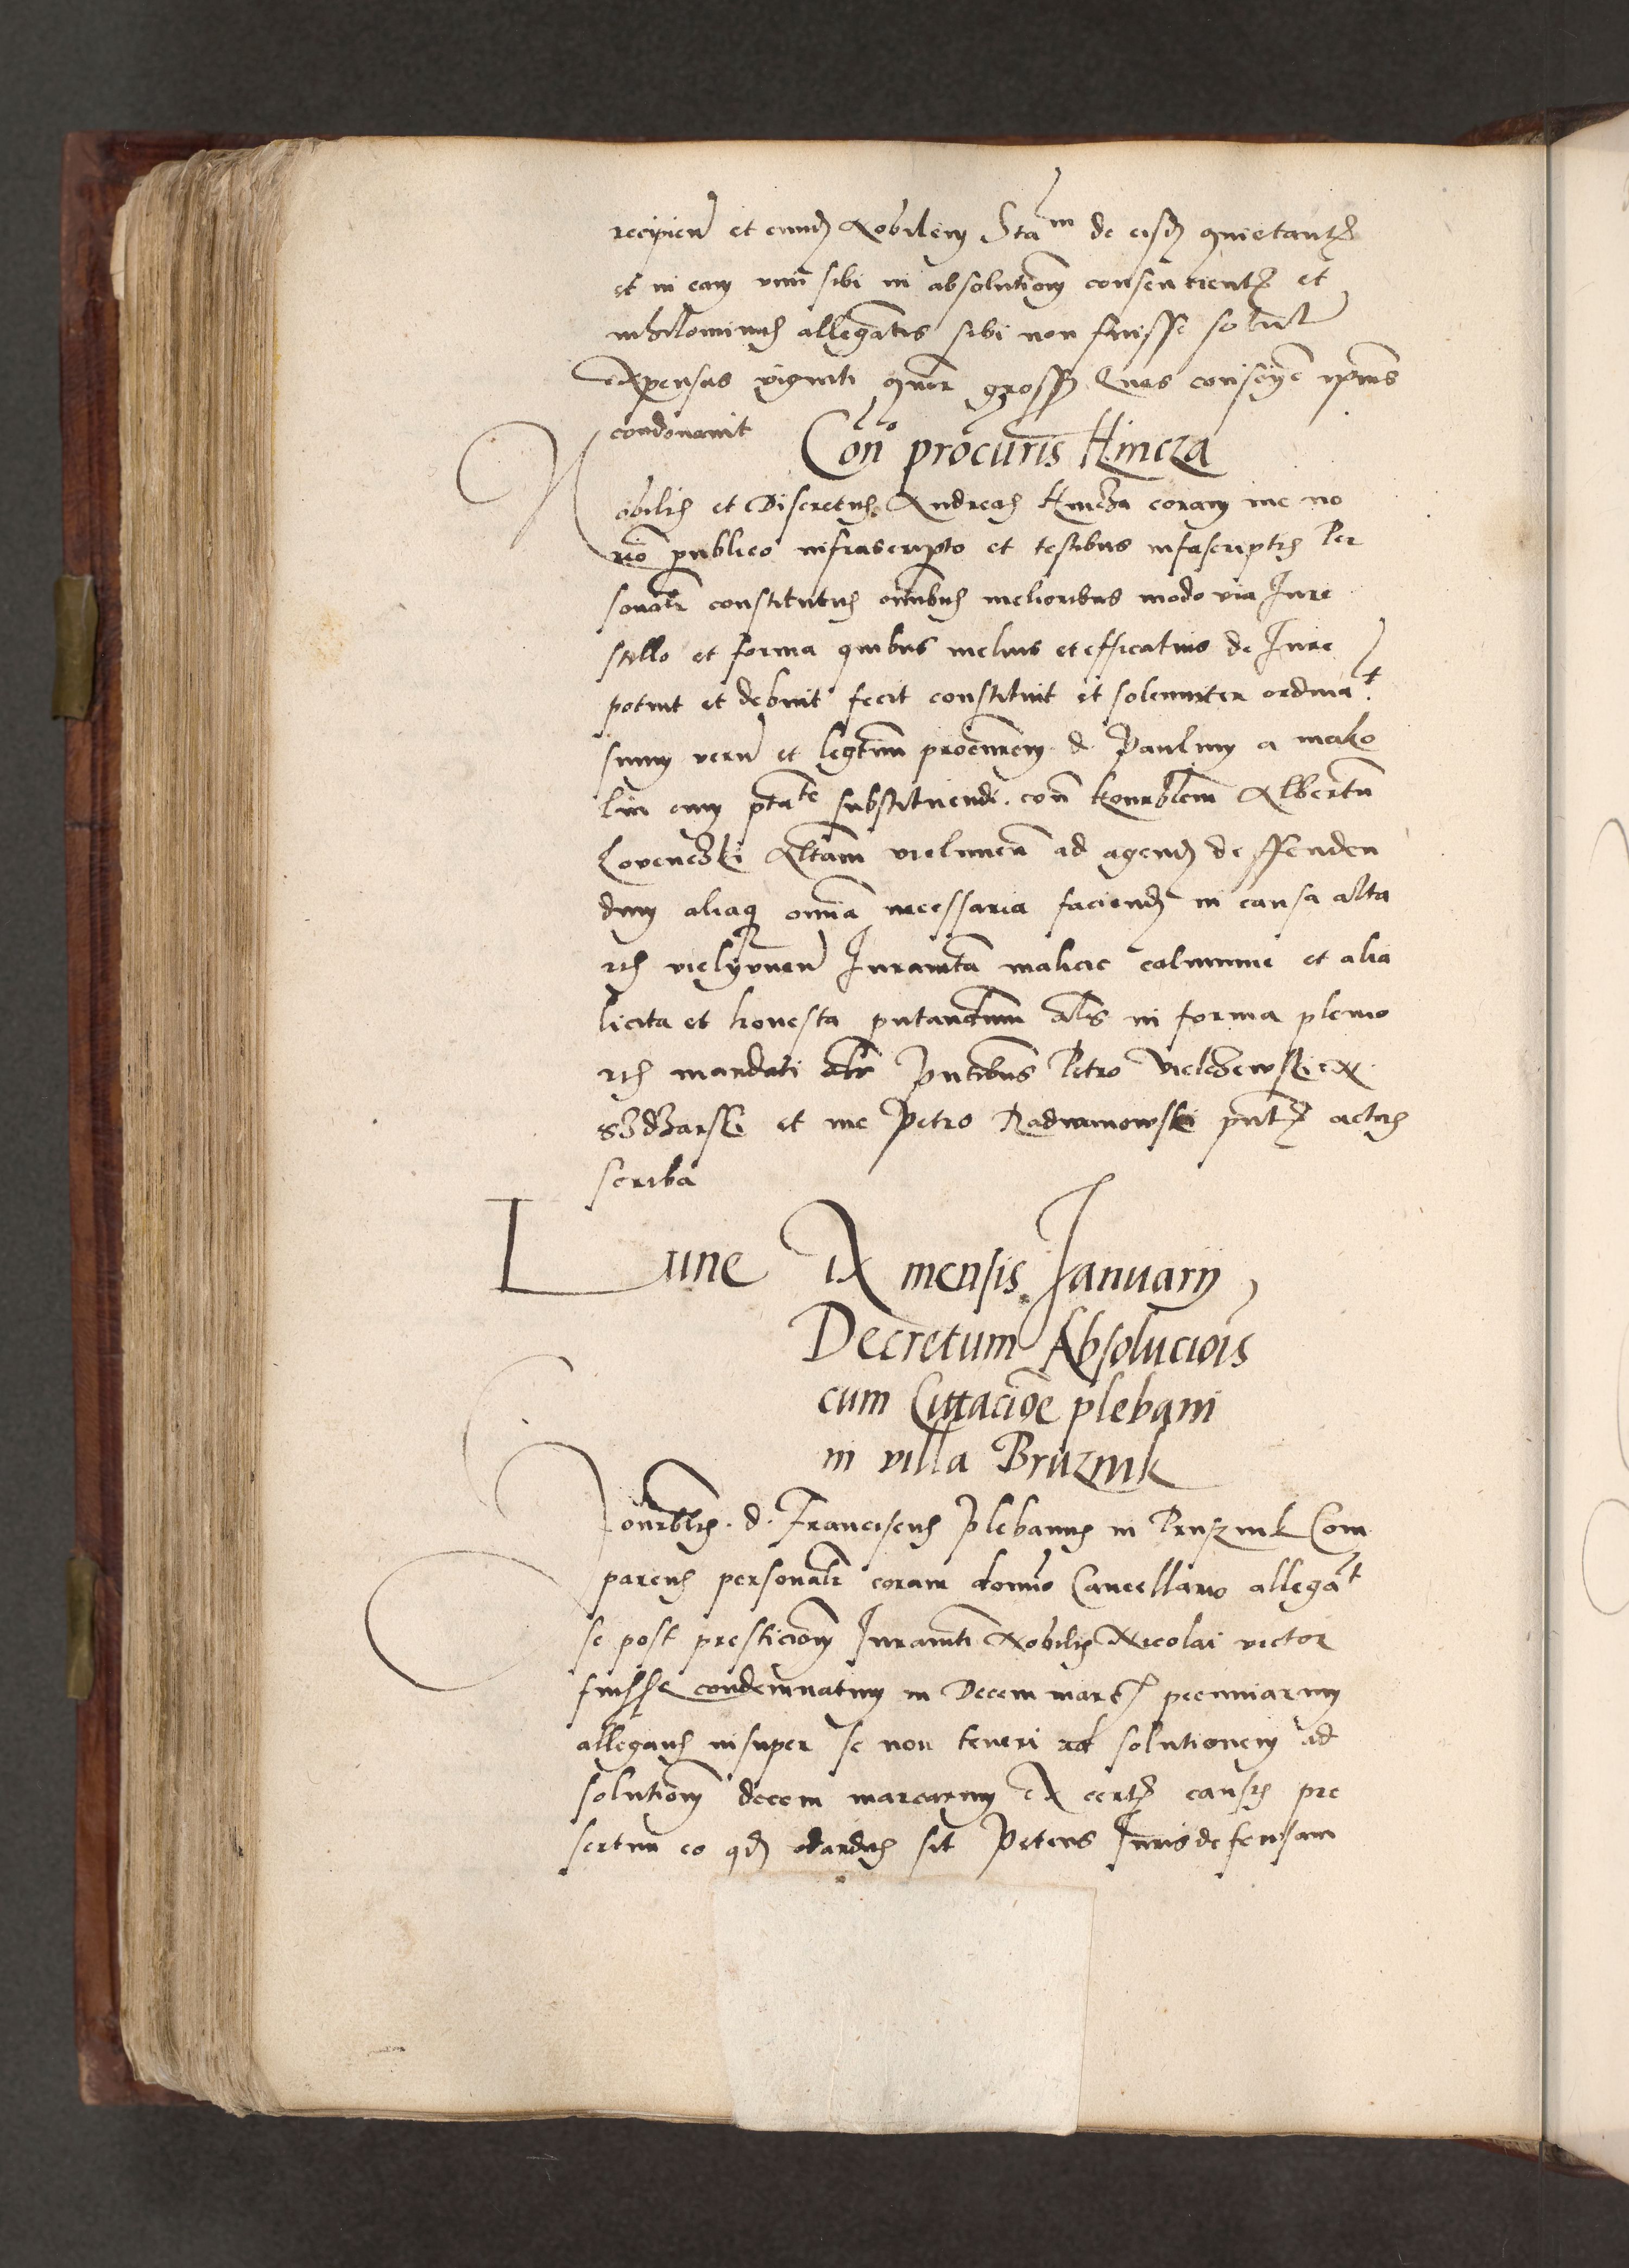 recipien et eund Nobilem Stam de eisd quietantz
et in eam vim sibi in absolutiom consencientz et
nihilominus allegantis sibi non fuisse solut
expensas viginti quor gross Quas
condonavit
Con procuris Hincza
Nobilis et Discretus Andreas Hincza coram me no
rio publico infrascripto et testibus infascriptis Per
sonalr constitutus omibus melioribus modo via Jure
stillo et forma quibus melius et efficatius de Jure
potuit et debuit fecit constituit et solenniter ordinat
suum verum et legtimum procurem d. Paulum a mako
lin cum ptate substituendi con honrablem Albertum
Lovenczki Altam vielunen ad agend deffenden
dum aliaq omnia necessaria faciend in causa alta
ris vielunen Juramta malicie calumnie et alia
licita et honesta putandum als in forma pleno
ris mandati Pntibus Petro vielczewski ex
et me Petro Radwanowski pntz actus
scriba
Lune IX mensis Januarii
Decretum Absoluciois
cum Cittacione plebani
in villa Bruznik
Honrablis d. Franciscus Plebanus in Bruznik Com
parens personalr coram domino Cancellario allegat
se post presticiom Juramti Nobilis Nicolai victor
fuisse condemnatum in Decem marc pecuniarum
allegans insuper se non teneri ad solutionem ad
solutiom decem marcarum ex certz causis pre
sertim eo qd sit Petens Juris defensam